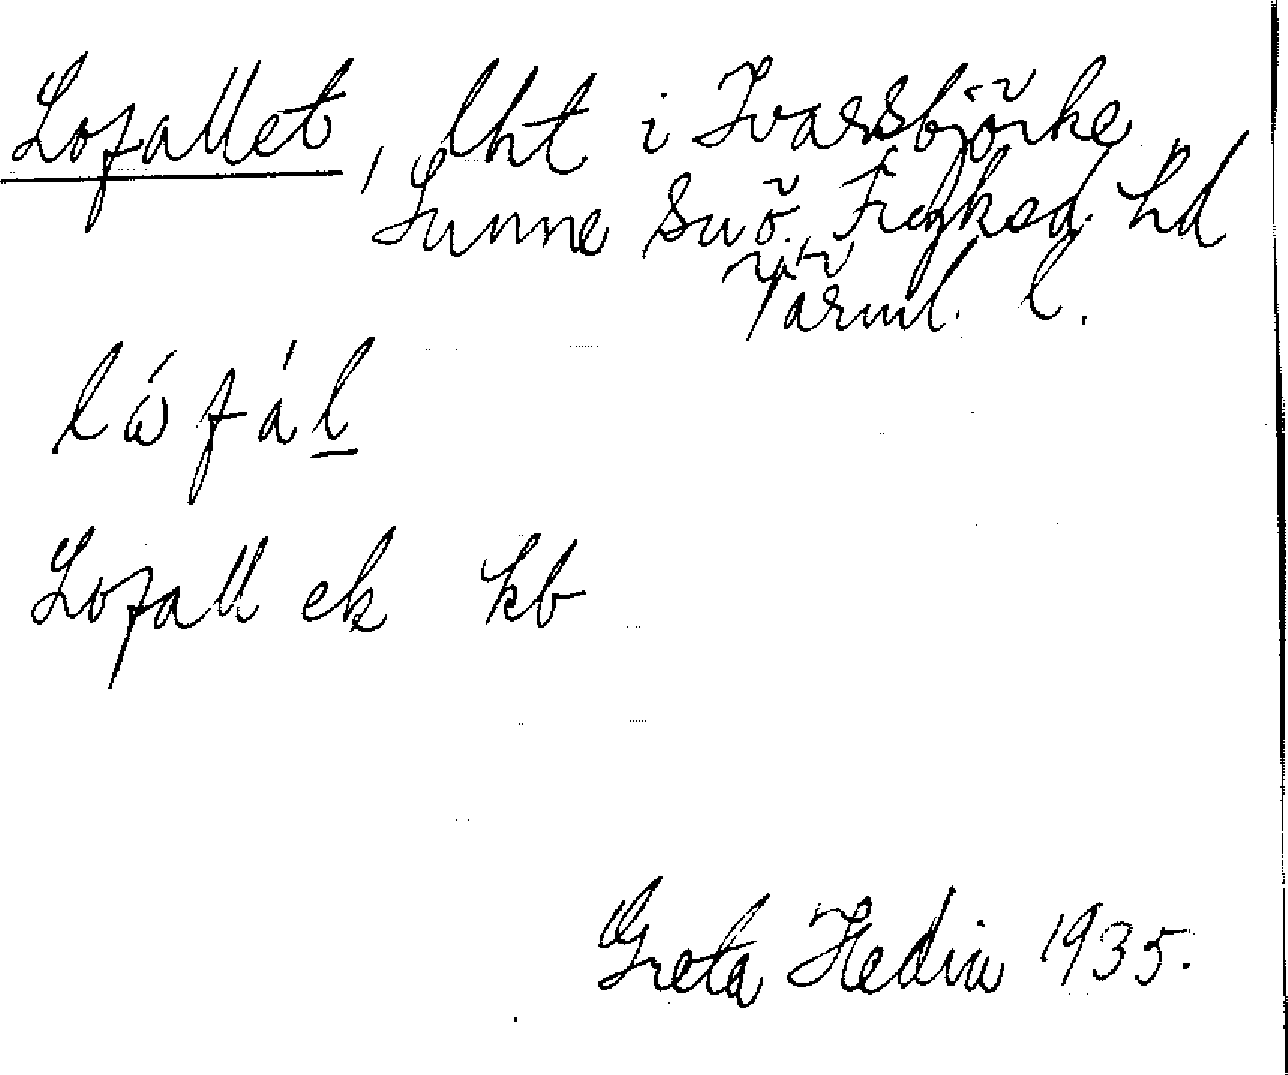 Lofallet, lht i Ivarsbjörke
Sunne sn ö. Fryksd. hd
Värml. l.
l ά f á l
Lofall ek kb
Greta Hedin 1935.